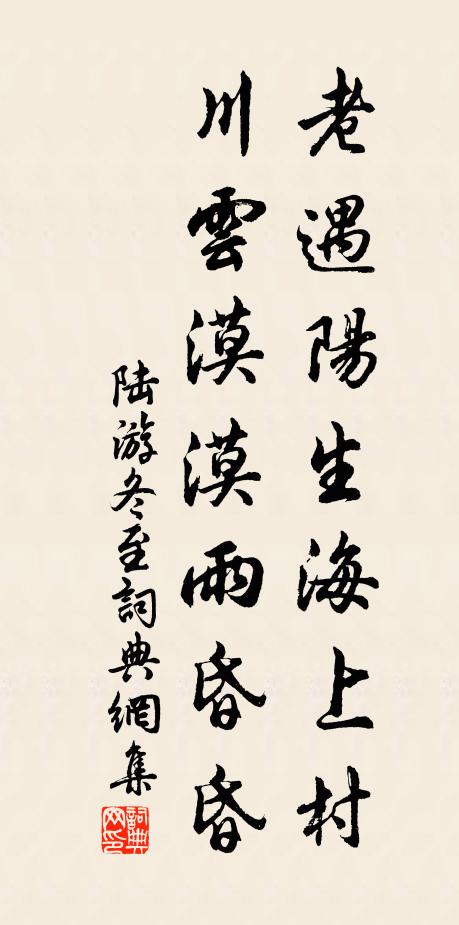 老遇陽生海上村
川雲漠漠雨昏昏
陆游冬至詞典網集
詞典网印